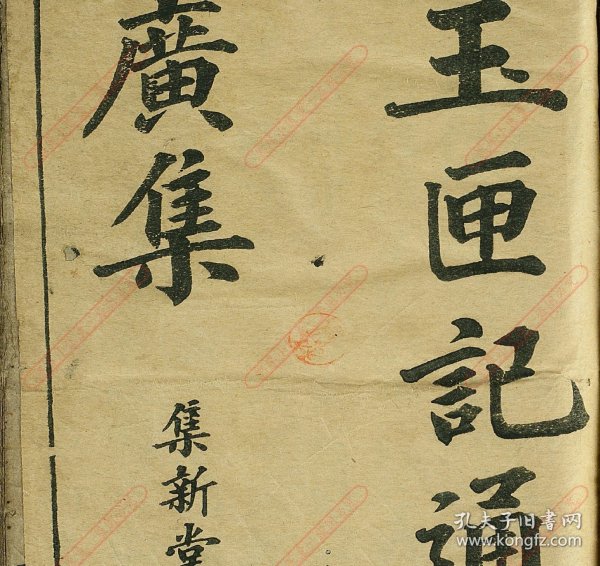 玉匣記通
廣集
集新堂
孔夫子旧书网
www.kongfz.com